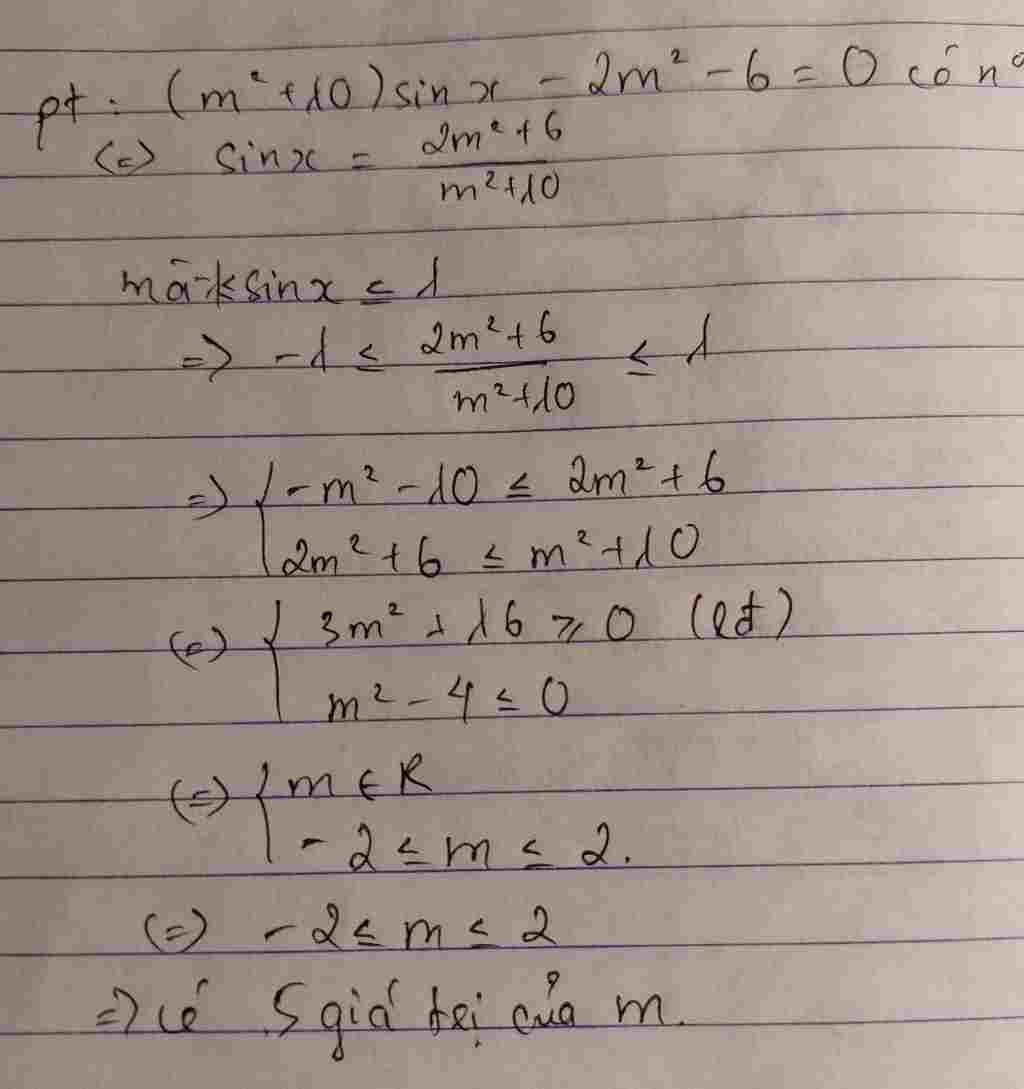 pt : (m²+10)sinx - 2m² - 6 = 0 có n⁰
(=) sinx = (2m²+6)/(m²+10)
mà -1≤ sinx ≤ 1
=> -1 ≤ (2m²+6)/(m²+10) ≤ 1
=> { -m² - 10 ≤ 2m² + 6
2m² + 6 ≤ m² + 10
(=) { 3m² + 16 ≥ 0 (lđ)
m² - 4 ≤ 0
(=) { m ∈ R
- 2 ≤ m ≤ 2.
(=) - 2 ≤ m ≤ 2
=> có 5 giá trị của m.